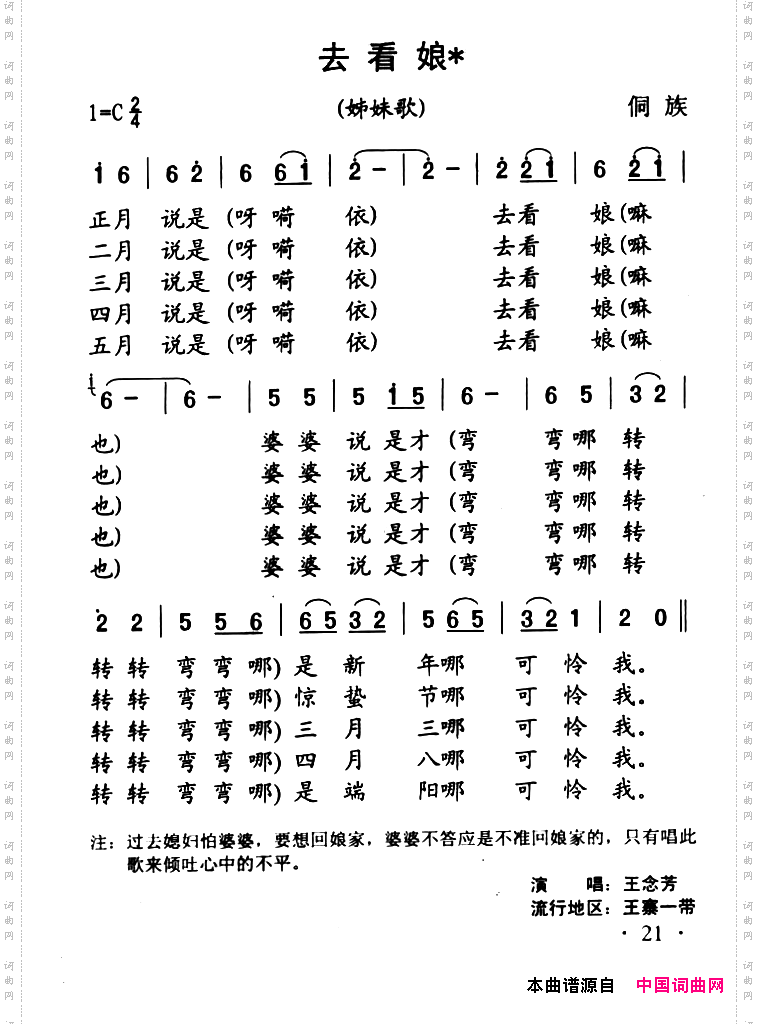 去看娘*
1=C 2/4 (姊妹歌) 侗族
1 6 | 6 2 | 6 6 1 | 2 – | 2 – | 2 2 1 | 6 2 1 |
正月 说是 (呀 嗬 依) 去看 娘(嘛
二月 说是 (呀 嗬 依) 去看 娘(嘛
三月 说是 (呀 嗬 依) 去看 娘(嘛
四月 说是 (呀 嗬 依) 去看 娘(嘛
五月 说是 (呀 嗬 依) 去看 娘(嘛
6 – | 6 – | 5 5 | 5 1 5 | 6 – | 6 5 | 3 2 |
也) 婆婆 说是才 (弯 弯哪 转
也) 婆婆 说是才 (弯 弯哪 转
也) 婆婆 说是才 (弯 弯哪 转
也) 婆婆 说是才 (弯 弯哪 转
也) 婆婆 说是才 (弯 弯哪 转
2 2 | 5 5 6 | 6 5 3 2 | 5 6 5 | 3 2 1 | 2 0 ‖
转转 弯弯哪) 是新 年哪 可怜我。
转转 弯弯哪) 惊蛰 节哪 可怜我。
转转 弯弯哪) 三月 三哪 可怜我。
转转 弯弯哪) 四月 八哪 可怜我。
转转 弯弯哪) 是端 阳哪 可怜我。
注：过去媳妇怕婆婆，要想回娘家，婆婆不答应是不准回娘家的，只有唱此
歌来倾吐心中的不平。
演 唱：王念芳
流行地区：王寨一带
· 21 ·
本曲谱源自 中国词曲网